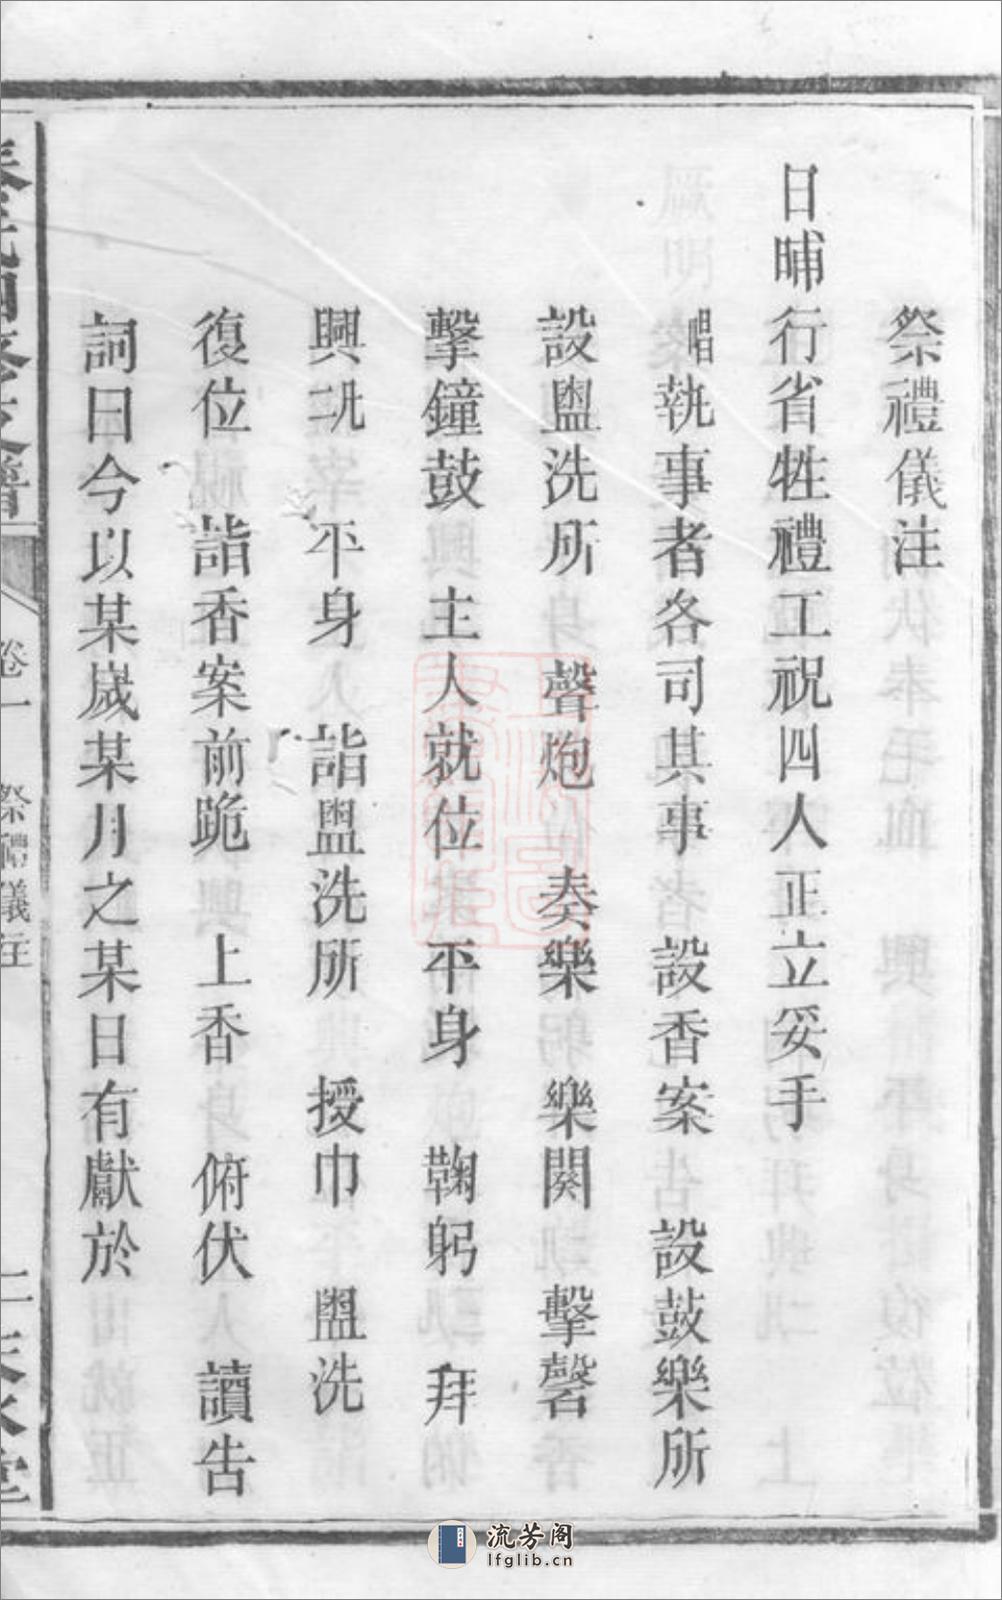 祭禮儀注
日晡行省牲禮工祝四人正立妥手
唱執事者各司其事 設香案 設鼓樂所
設盥洗所 聲炮 奏樂 樂闋 擊磬
擊鐘鼓 主人就位 平身 鞠躬 拜
興 平身 詣盥洗所 授巾 盥洗
復位 詣香案前跪 上香 俯伏 讀告
詞曰今以某嵗某月之某日有獻於
卷一 祭禮儀注
流芳阁
lfglib.cn